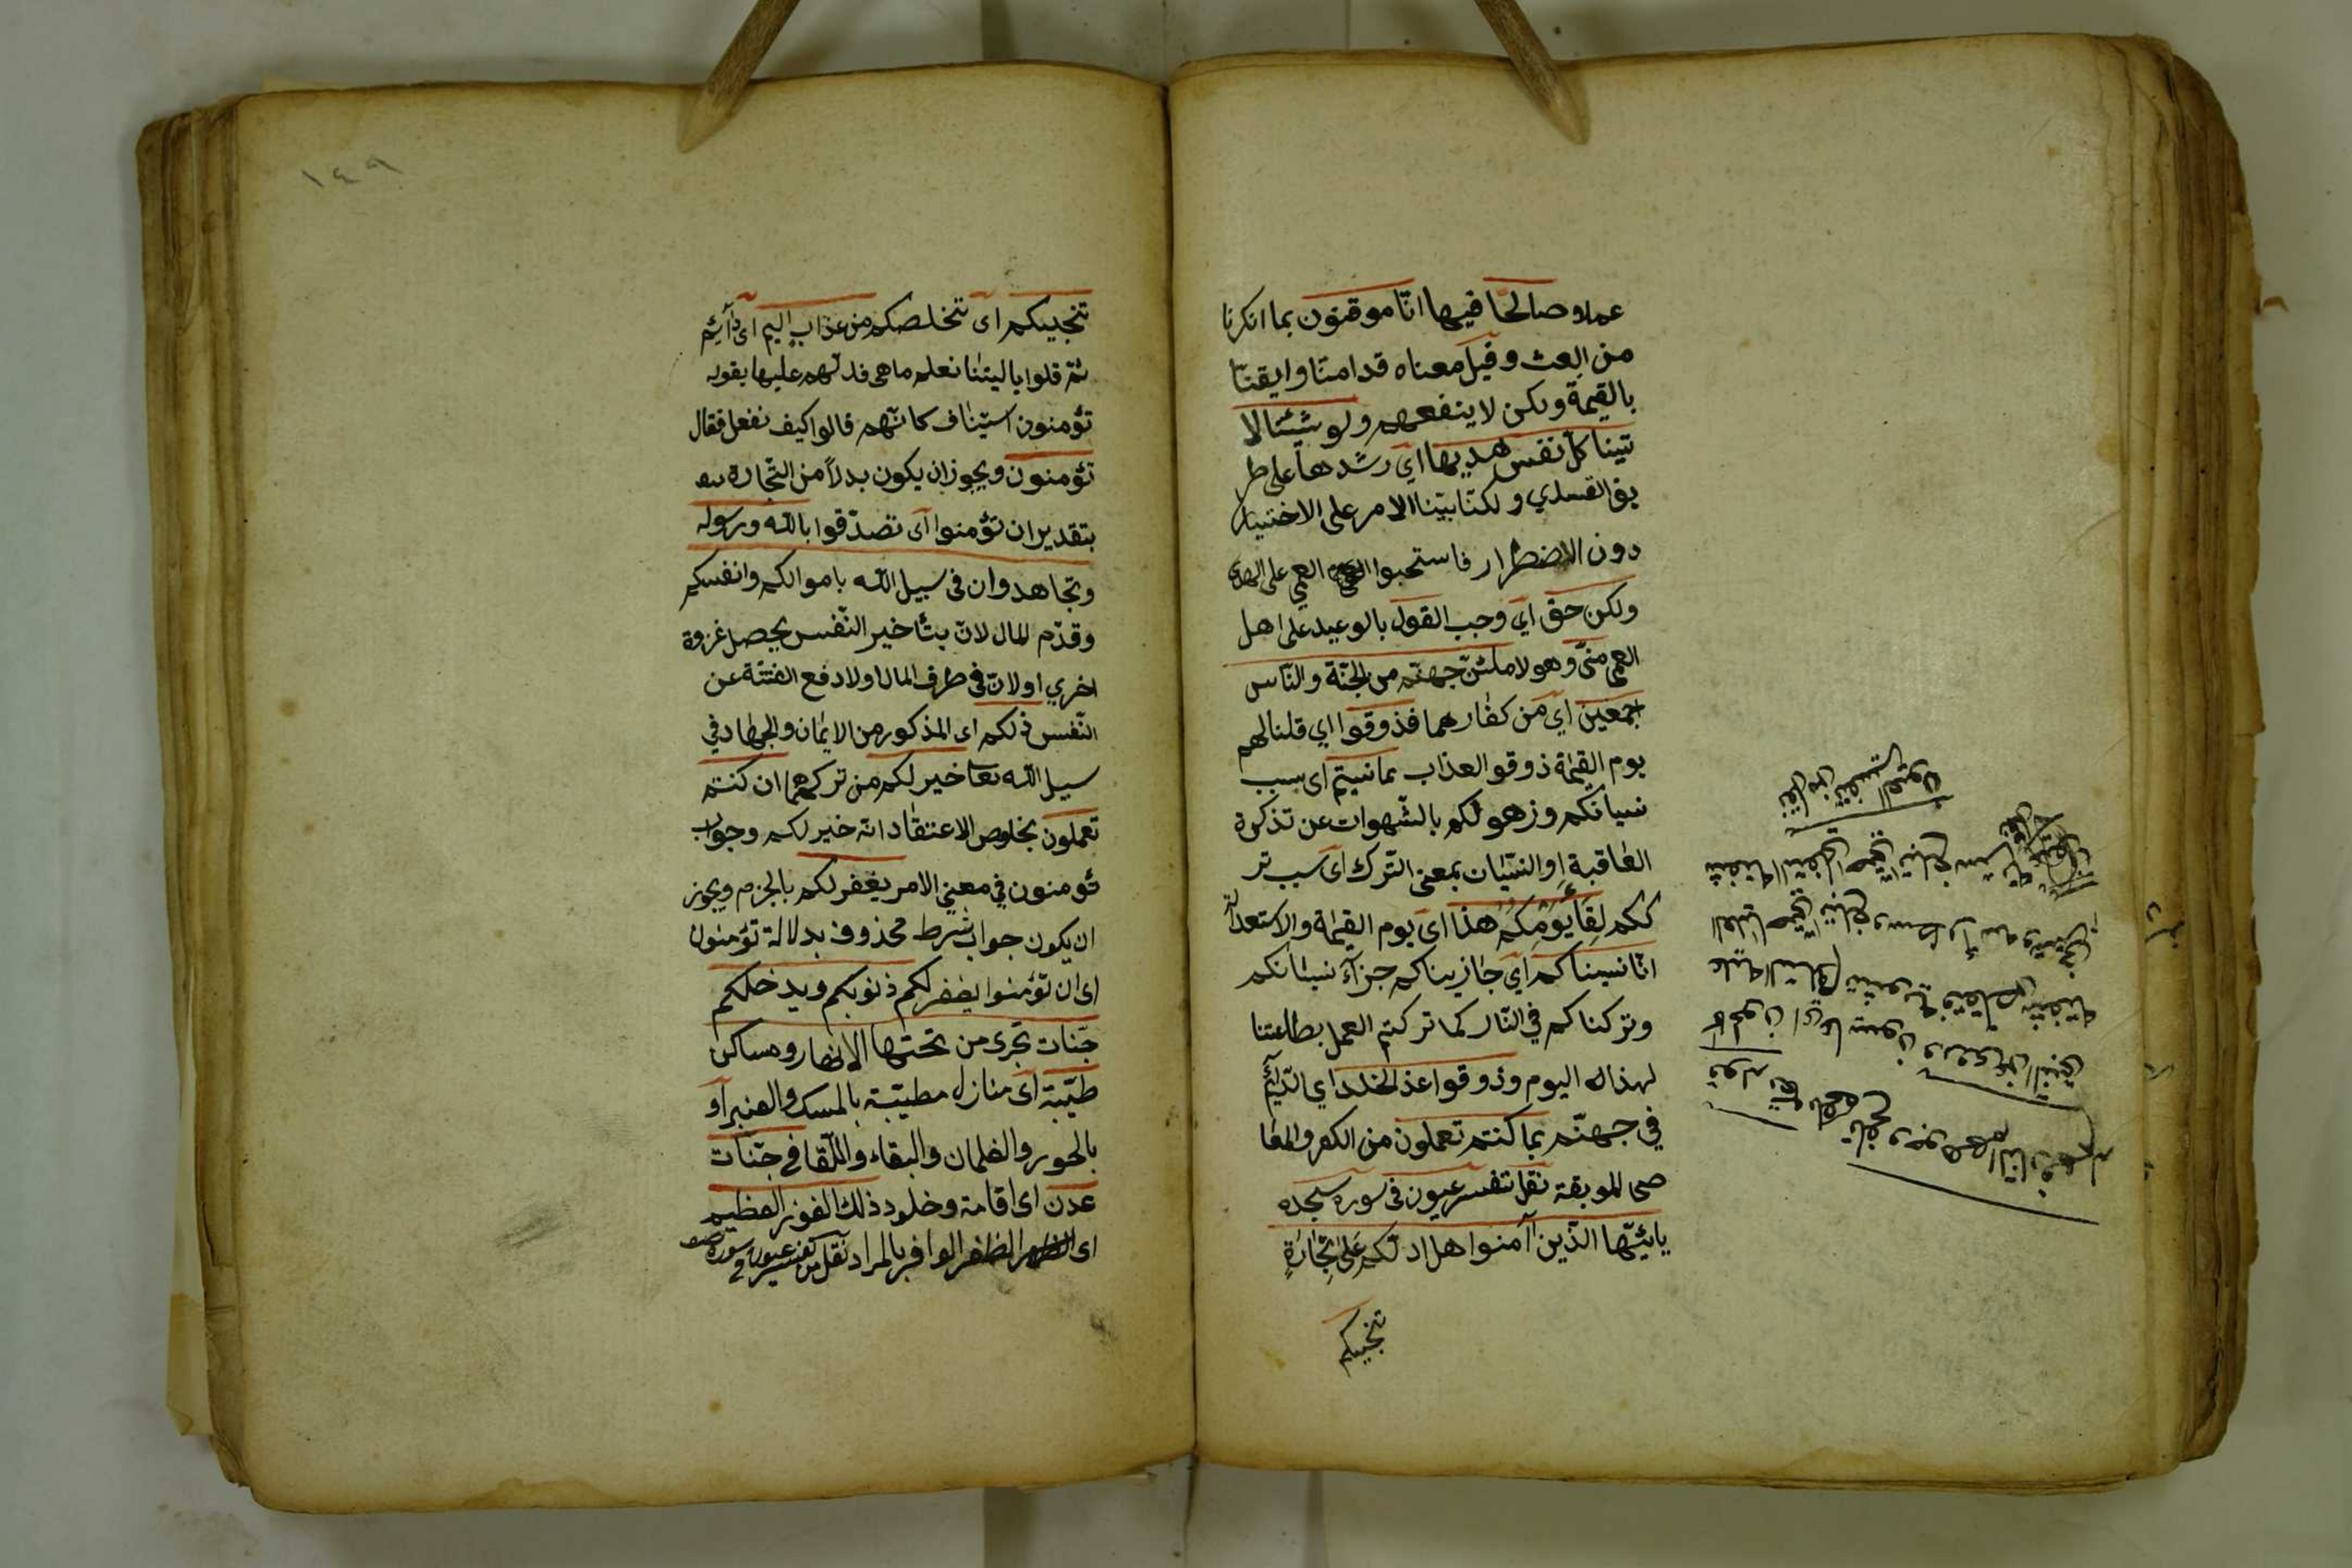 عملا صالحا فيها انّا موقنون بما انكرنا
من البعث وقيل معناه قد امنّا وايقنّا
بالقيمة ولكن لا ينفعهم ولو شئنا لا
تينا كلّ نفس هديها اي رشدها على طر
يق القسدي ولكنّا بيّنا الامر على الاختيار
دون الاضطرار فاستحبوا العمي على الهدى
ولكن حق اي وجب القول بالوعيد على اهل
العمى منّى وهو لاملئنّ جهنّم من الجنّة والنّاس
اجمعين اي من كفّارهما فذوقوا اي قلنا لهم
يوم القيمة ذوقو العذاب بما نسيتم اى بسبب
نسيانكم وزهولكم بالشّهوات عن تذكرة
العاقبة او النسيان بمعنى التّرك اى بسبب تر
ككم لِقَأَ يَوْمِكُمْ هذا اى يوم القيمة والاستعداله
انّا نسيناكم اي جازيناكم جزآءَ نسيانكم
وتركناكم في النّار كما تركتم العمل بطاعتنا
لهذاله اليوم وذوقوا عذ الخلد اي الدّآئم
في جهنّم بما كنتم تعملون من الكفر والمعا
صى الموبقة نقل تفسر عيون فى سوره سجده
يائيّها الذّين اآمنوا هل ادلّكم عَلىَ تِجَارَةٍ
تنجيكم
قوله تعالى تلفح وجوههم النّار وهم
فيها كالحون اي عابسون وعن النبى
عليه السّلام تشويه فتقلص شفته
العليا حتّى تبلغ وسط رأسه وتسترخى
شفته السّفلى حتّى تبلغ سرته
نقل من تفسير العيون
١٤٩
تنجيكم اى تخلصكم من عذاب اليم اى دآئم
ثمّ قلوا ياليتنا نعلم ما هى فدلّهم عليها بقوله
تؤمنون استيناف كانّهم قالوا كيف نفعل فقال
تؤمنون ويجوز ان يكون بدلاً من التّجارة
بتقدير ان تؤمنوا اى تصدّقوا بالله ورسوله
وتجاهدوان فى سبيل الله باموالكم وانفسكم
وقدّم المال لانّ بتأخير النّفس يحصل غزوة
اخري او لانّ فى طرف المال اولا دفع الفتنة عن
النّفس ذلكم اى المذكور من الايمان والجهاد في
سبيل الله تعا خير لكم من تركهما ان كنتم
تعملون بخلوص الاعتقاد انّه خير لكم وجواب
تؤمنون في معنى الامر يغفر لكم بالجزم ويجوز
ان يكون جواب شرط محذوف بدلالة تؤمنون
اى ان تؤمنوا يغفر لكم ذنوبكم ويدخلكم
جنّات تجرى من تحتها الانهار ومساكن
طيّبة اى منازل مطيّبة بالمسك والعنبر او
بالحور والغلمان والبقاء واللّقا في جنّات
عدن اى اقامة وخلود ذلك الفوز العظيم
اى الظفر الوافر بالمراد نقل من تفسير عيون في سورة صف